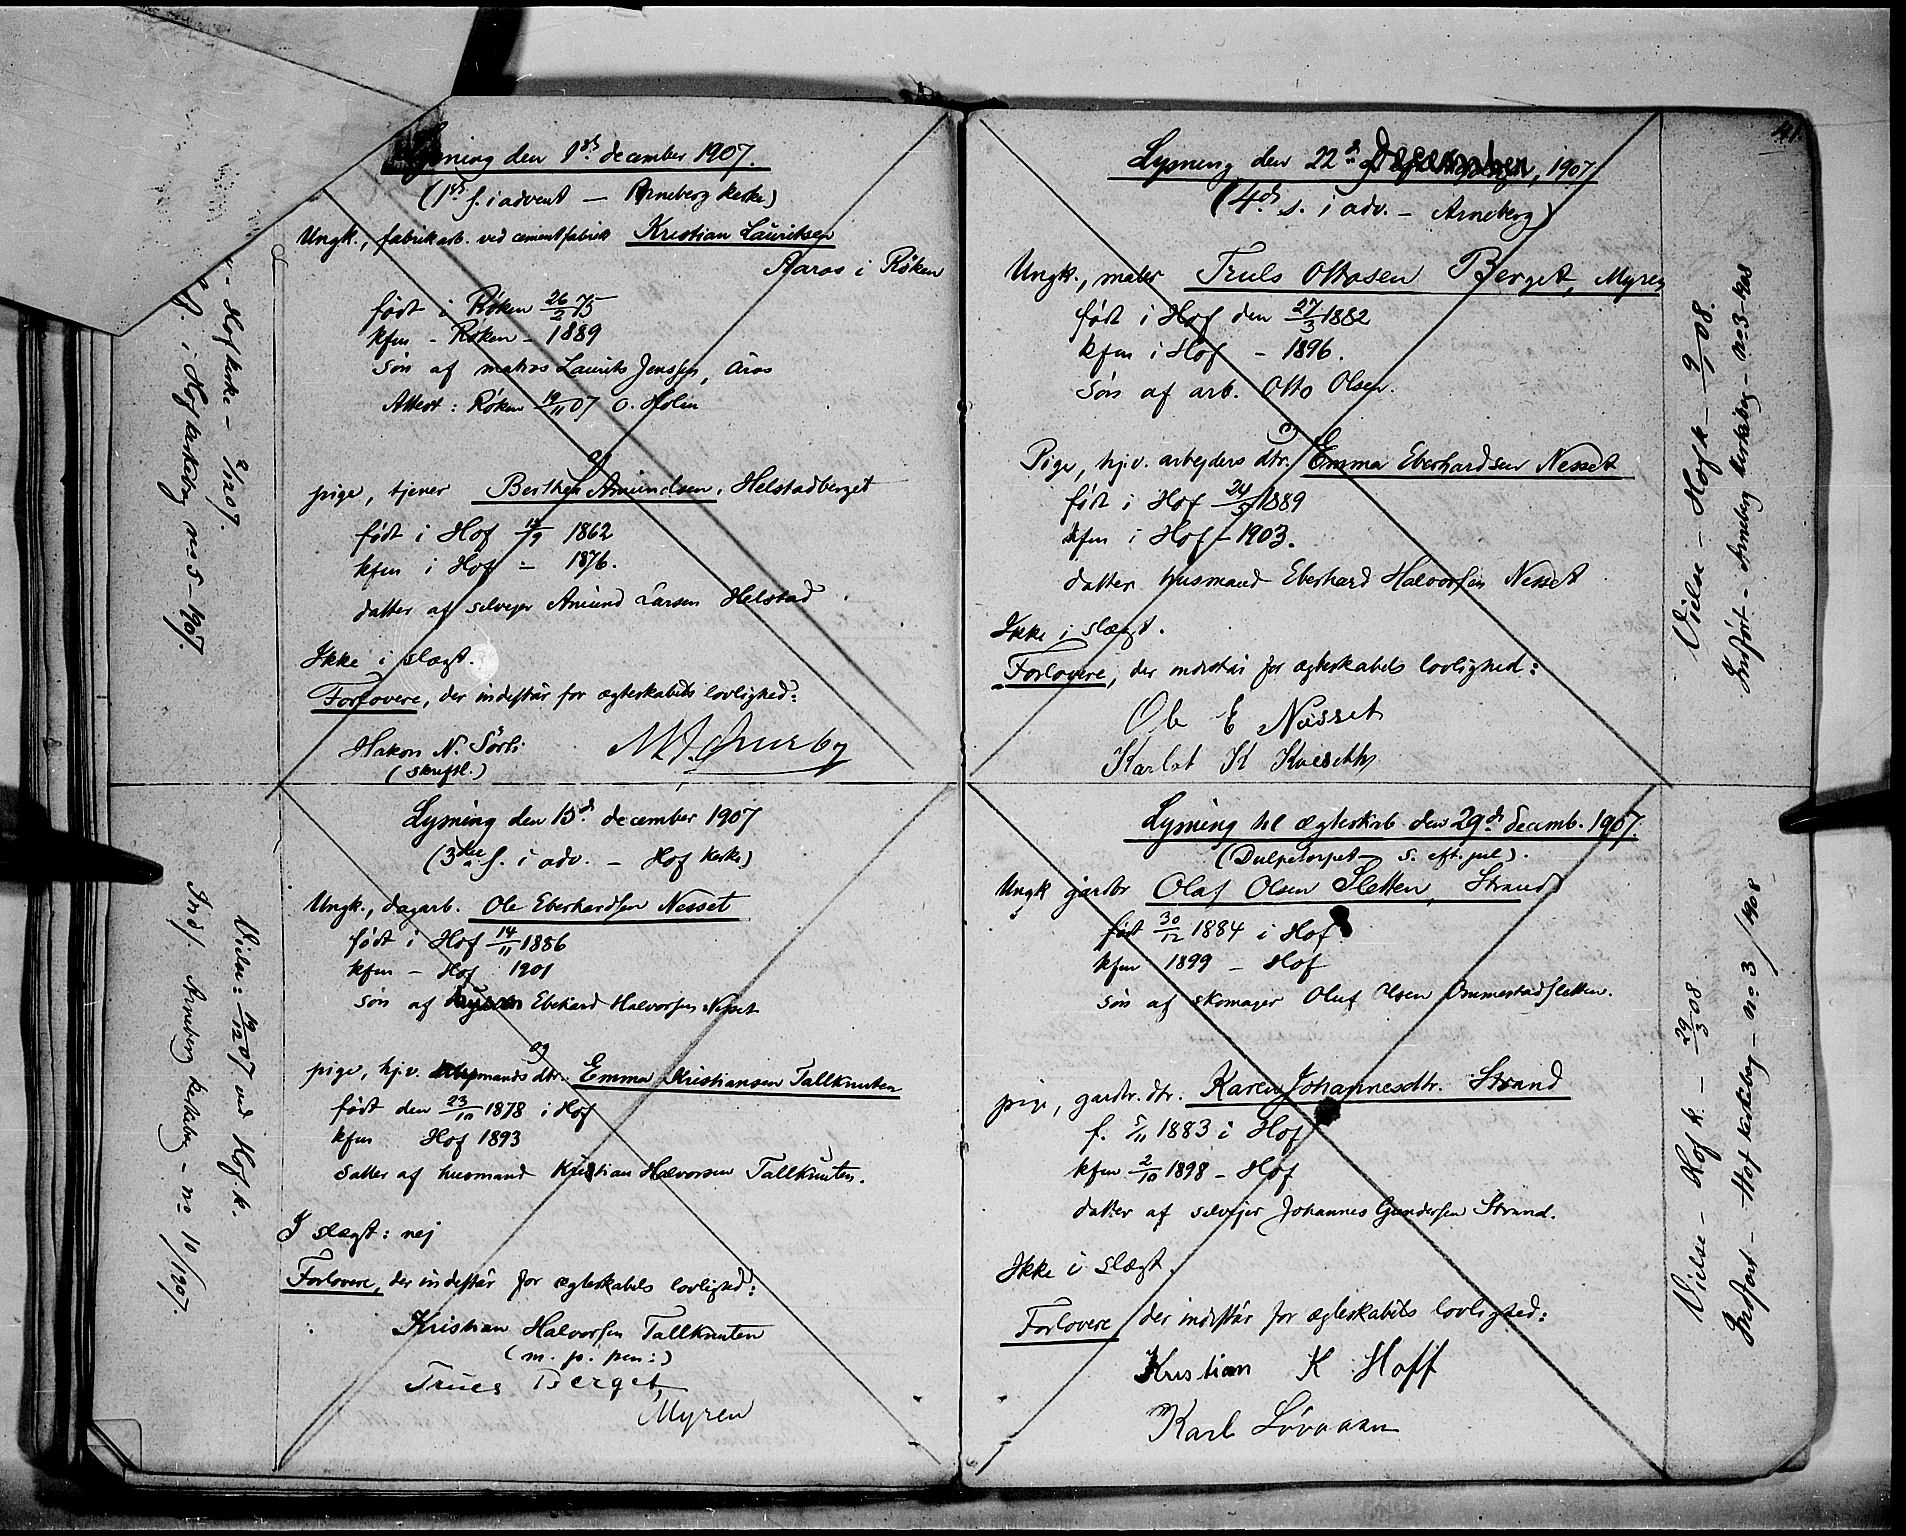 Lysning den 1ste december 1907.
(1ste s. i advent — Arneberg kerke)
Ungk., fabrikarb. ved cementfabrik Kristian Lauritsen
Aaros i Röken
født i Røken 26/2 75
kfm - Røken - 1889
sön af matros Laurits Jenssen, Åros
Attest: Røken 19/11 07 O. Holm
og
pige, tjener Berthea Amundsen, Helstadberget
født i Hof 1862
kfm i Hof - 1876.
datter af selveger Amund Larsen Helstad
Ikke i slægt.
Forlovere, der indestår for ægteskabets lovlighed:
Hakon N. Sörli
(skriftl.)
- Hof kerke - 2/12 07.
i Hof kerkebog no 5 - 1907.
Lysning den 15de december 1907
(3die s. i adv. — Hof kerke)
Ungk., dagarb. Ole Eberhardsen Nesset
født i Hof 14/11 1886
kfm - Hof 1901
sön af Eberhard Halvorsen Nesset
og
pige, hj.v. husmands dtr. Emma Kristiansen Tallknuten
født den 23/10 1878 i Hof
kfm Hof 1893
datter af husmand Kristian Halvorsen Tallknuten.
I slægt: nej
Forlovere, der indestår for ægteskabets lovlighed:
Kristian Halvorsen Tallknuten
(m. p. pen:)
Truls Berget,
Myren
Vielse: 19/12 07 ved Hof k.
Indf. Arneberg kerkebg - no 10/1907.
41.
Lysning den 22de December, 1907
(4de s. i adv. - Arneberg)
Ungk., maler Truls Ottosen Berget, Myren
født i Hof den 27/3 1882
kfm i Hof - 1896.
sön af arb. Otto Olsen.
og
Pige, hj.v. arbejders dtr. Emma Eberhardsen Nesset
født i Hof 24/5 1889
kfm i Hof - 1903.
datter husmand Eberhard Halvorsen Nesset
Ikke i slægt.
Forlovere, der indestår for ægteskabets lovlighed:
Ole E Næsset
Karl K Kveseth
Vielse - Hof k - 9/1 08.
Indført - Arneberg kerkebog - no 3 - 1908
Lysning til ægteskab den 29de decemb. 1907.
(Dulpetorpet - s. eft. jul).
Ungk gardbr Olaf Olsen Sletten, Strand
født 30/12 1884 i Hof
kfm 1899 - Hof
sön af skomager Oluf Olsen Ommestadsletten.
pige, gardbr. dtr. Karen Johannesdtr. Strand
f. 5/11 1883 i Hof
kfm 2/10 1898 - Hof
datter af selvejer Johannes Gundersen Strand.
Ikke i slægt.
Forlovere der indestår for ægteskabets lovlighed:
Kristian K Hoff
Karl Lövaasen
Vielse - Hof k. - 29/3 08
Indført - Hof kerkebog - no 3/1908